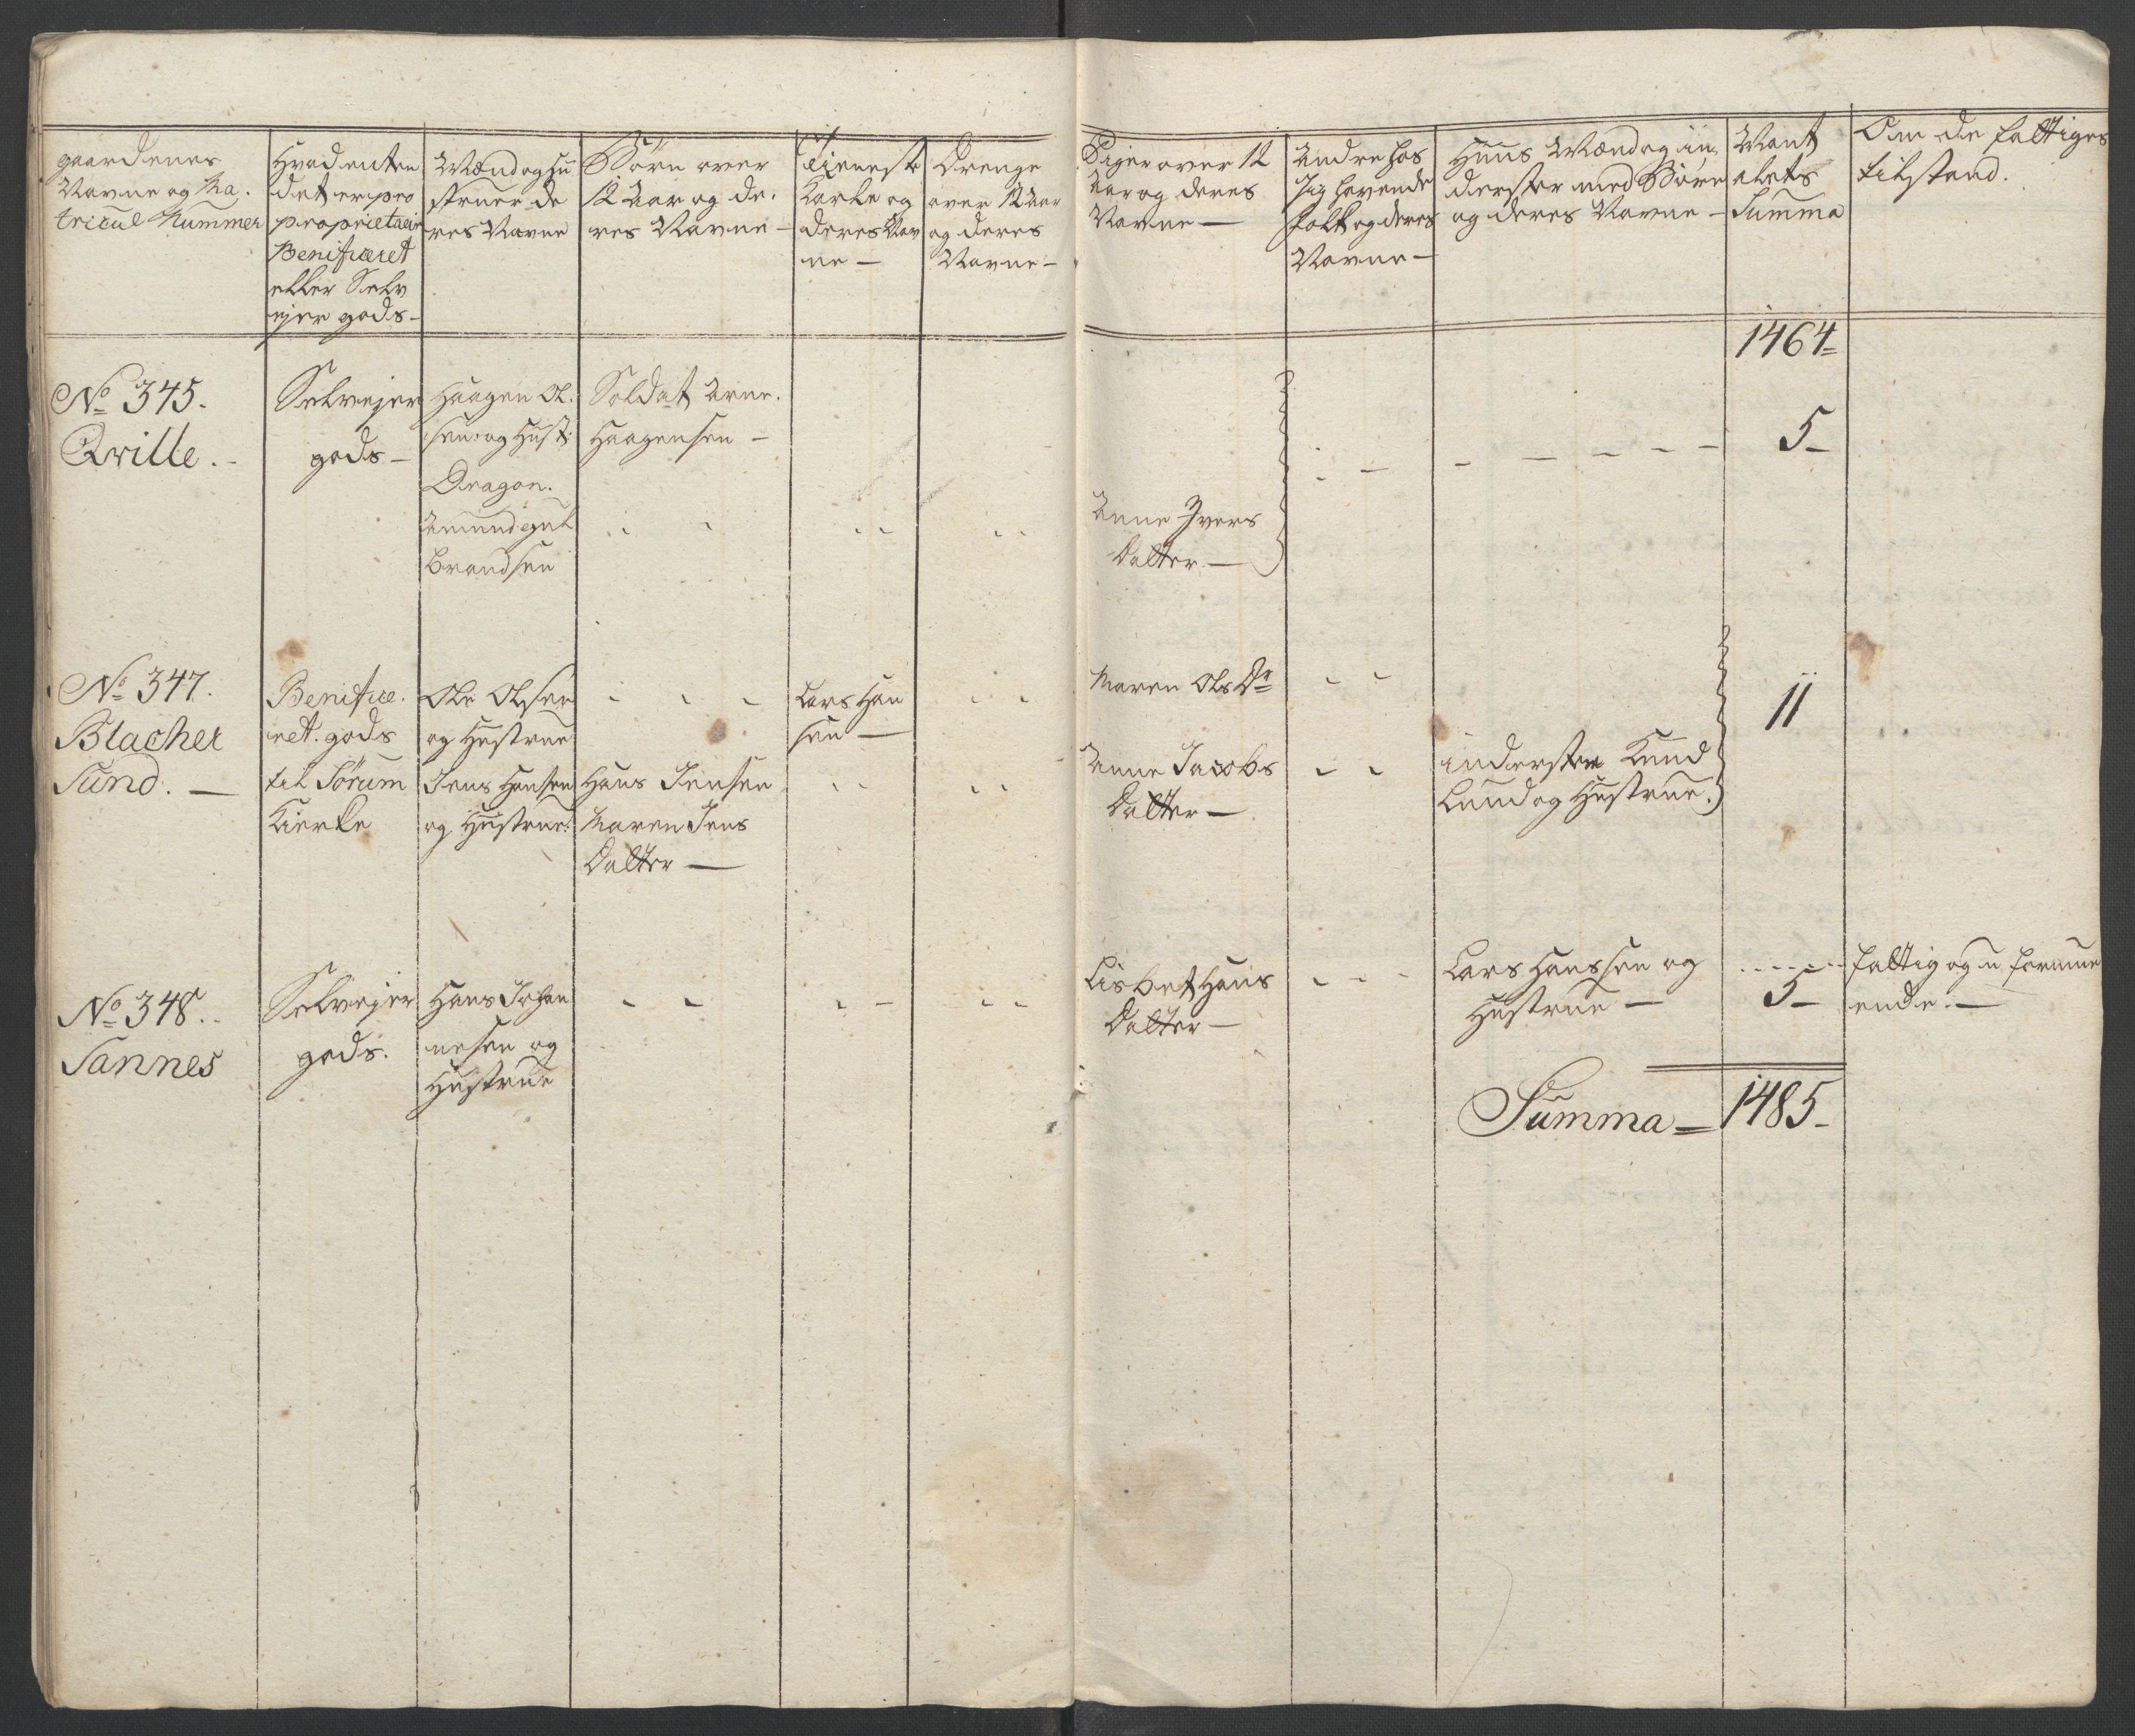 gaardenes
Navne og Ma-
tricul Nummer
Hvad enten
det er pro
proprietair
Benificeret
eller Selv
ejer gods-
Mænd og Hu
struer de
res Navne
Børn over
12 Aar og de-
res Navne -
Tieneste
Karle og
deres Nav
ne -
Drenge
over 12 Aar
og deres
Navne -
Piger over 12
Aar og deres
Navne -
Andre hos
sig havende
folk og deres
Navne -
Huus Mænd og in
derster med Børn
og deres Navne -
Mant
alets
Summa
Om de fattiges
tilstand.
1464=
No 345.
Qville.-
Selvejer
gods -
Haagen Ol-
sen og Hust:
Dragon.
Amund Gul
brandsen
Soldat Arne
Haagensen -
Anne Ivers
Datter -
5-
No 347.
Blacher
Sund. -
Benifice-
ret. gods
til Sørum
Kierke
Ole Olsen
og Hustrue
Jens Hansen
og Hustrue
Hans Jensen
Maren Jens
Datter -
Lars Han
sen -
Maren Ols Dr
Anne Jacobs
Datter -
inderster Knud
Lund og Hustrue.
11
No 348.-
Sannes
Selvejer
gods.
Hans Johan
nesen og
Hustrue
Lisbet Hans
Datter -
Lars Hanssen og
Hustrue -
5-
fattig og u formue
ende. -
Summa = 1485-